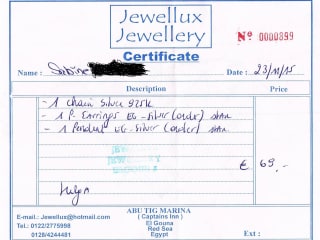 Jewellux
Jewellery
Nº 0000899
Certificate
Name : Sabine
Date : 23/11/15
Description Price
- 1 chain Silver 925k
- 1 P. Earrings EG - Silver (order)
- 1 Pendant EG - Silver (order)
€ 69.-
ABU TIG MARINA
( Captains Inn )
El Gouna
Red Sea
Egypt
E-mail.: Jewellux@hotmail.com
Tel.: 0122/2775998
0128/4244481
Ext :